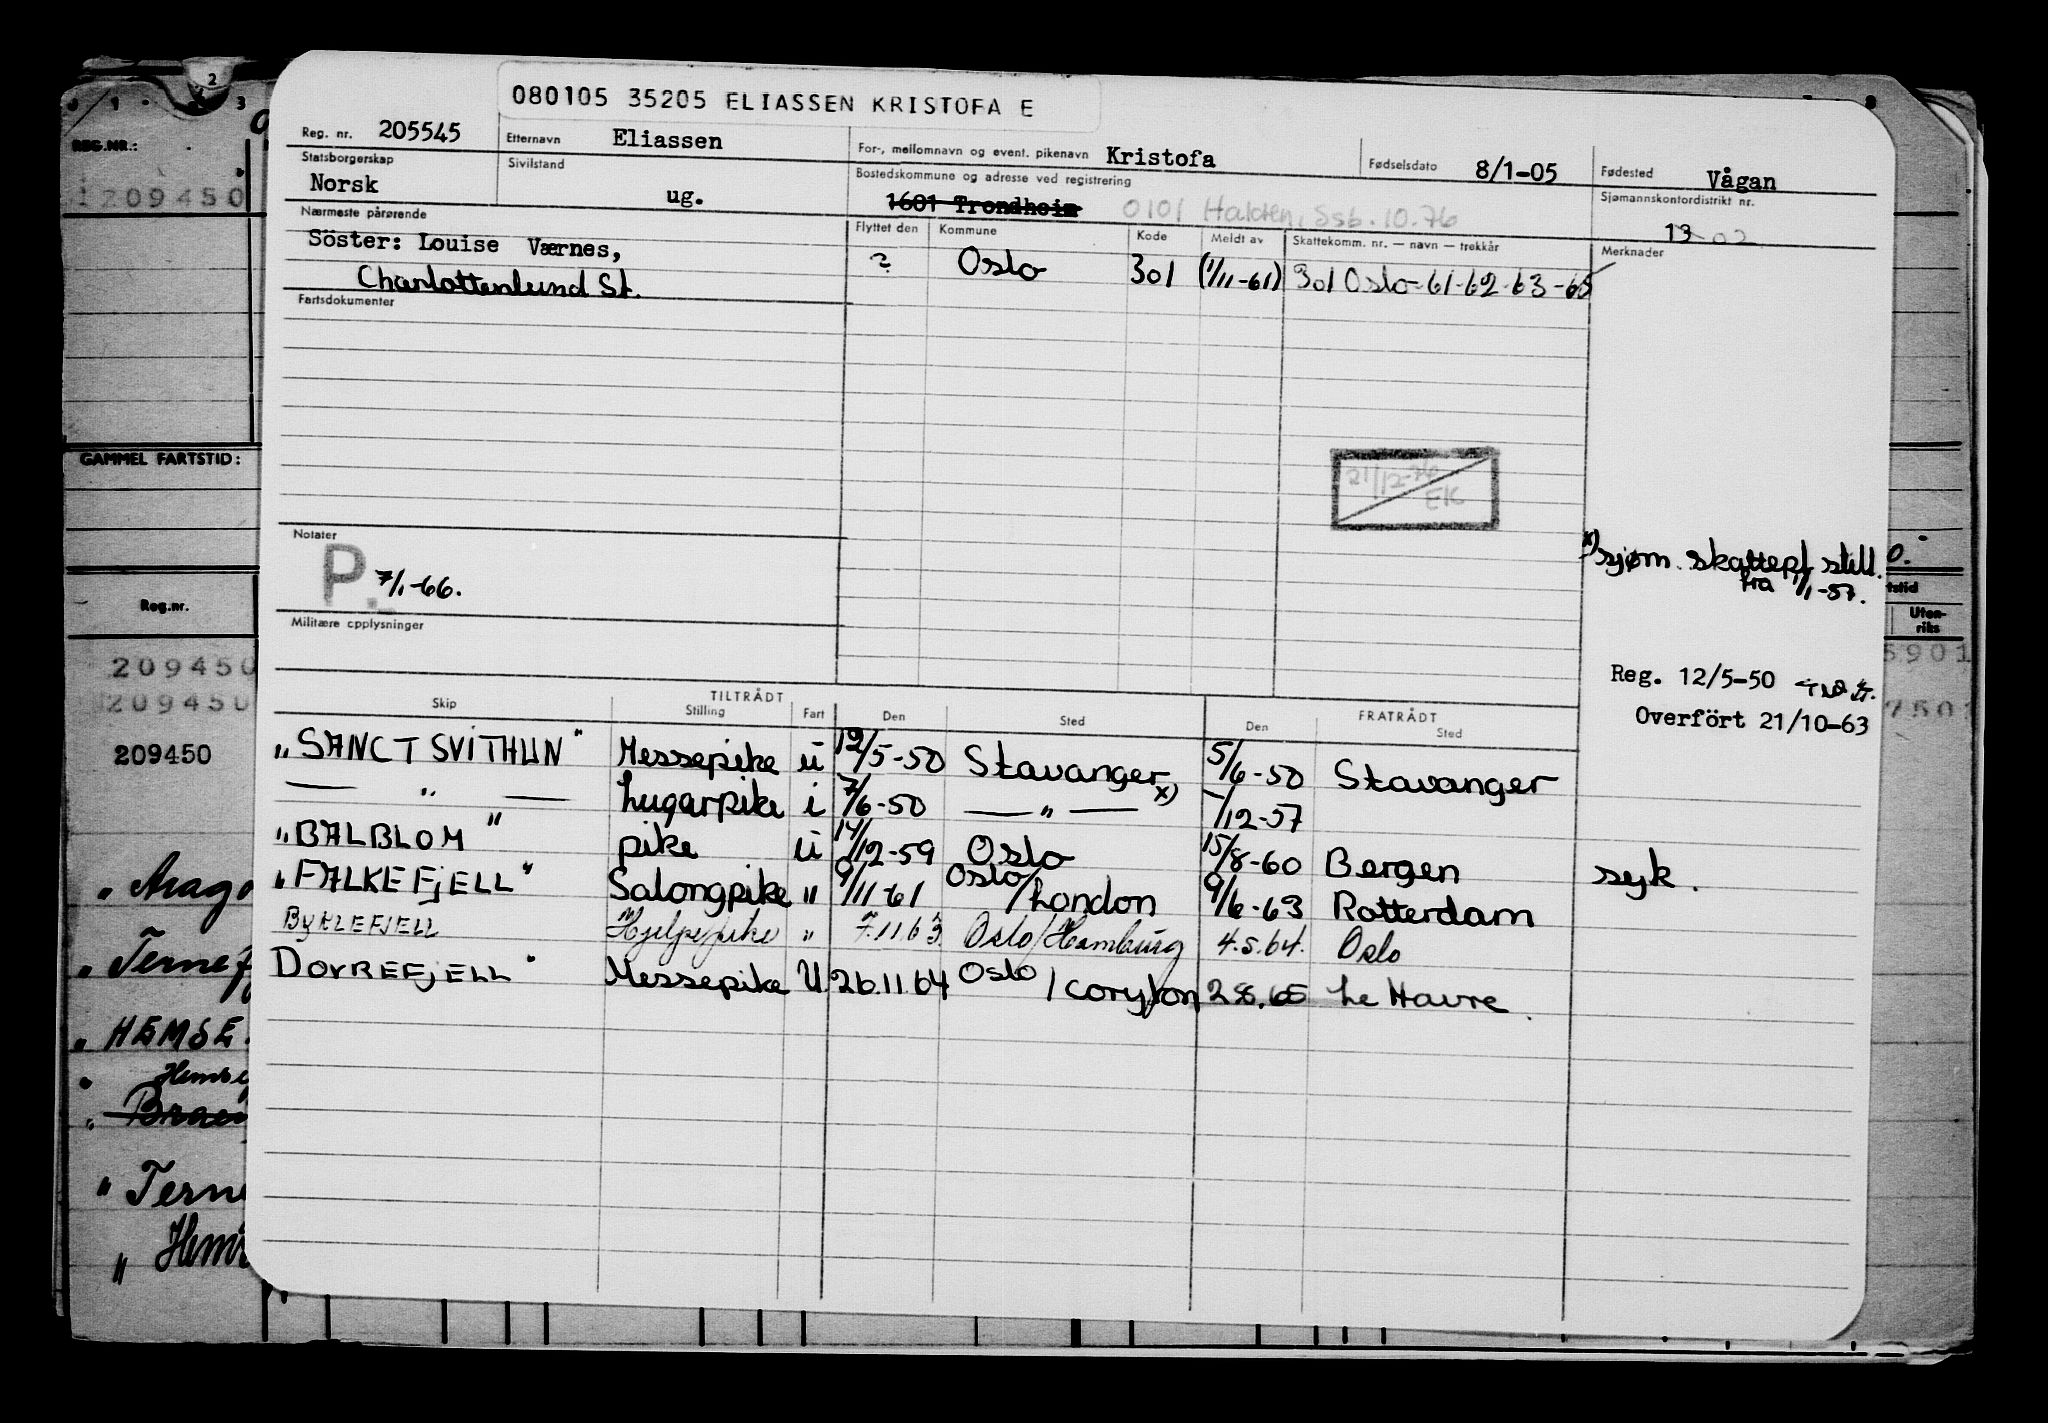 080105 35205 ELIASSEN KRISTOFA E
Reg. nr. 205545 Etternavn Eliassen For-, mellomnavn og event. pikenavn Kristofa Fødselsdato 8/1-05 Fødested Vågan
Statsborgerskap Norsk Sivilstand ug. Bostedskommune og adresse ved registrering 1601 Trondheim 0101 Halden, Ssb. 10.76 Sjømannskontordistrikt nr. 13 02
Nærmeste pårørende Flyttet den Kommune Kode Meldt av Skattekomm. nr. — navn — trekkår Merknader
Söster: Louise Værnes, ? Oslo 301 (1/11-61) 301 Oslo-61-62-63-65
Charlottenlund St.
Fartsdokumenter
21/12-76
EK
Notater
P. 7/1-66.
x) sjøm. skattepl still.
fra 1/1-57.
Militære opplysninger
Reg. 12/5-50
Overfört 21/10-63
TILTRÅDT FRATRÅDT
Skip Stilling Fart Den Sted Den Sted
„SANCT SVITHUN" Messepike u 12/5-50 Stavanger 5/6-50 Stavanger
— „ — Lugarpike i 7/6-50 — „ — x) -/12-57
„BALBLOM" pike u 14/12-59 Oslo 15/8-60 Bergen syk.
„FALKEFJELL" Salongpike " 9/11-61 Oslo/London 9/6-63 Rotterdam
BYKLEFJELL Hjelpepike " 7.11.63 Oslo/Hamburg 4.5.64. Oslo
DOVREFJELL" Messepike U 26.11.64 Oslo/Coryton 2.8.65 Le Havre.
2
3
REG.NR.:
209450
GAMMEL FARTSTID:
Reg.nr.
209450
209450
209450
„Terne
„HEMSE
„Terne
Uten-
riks
5901
7501